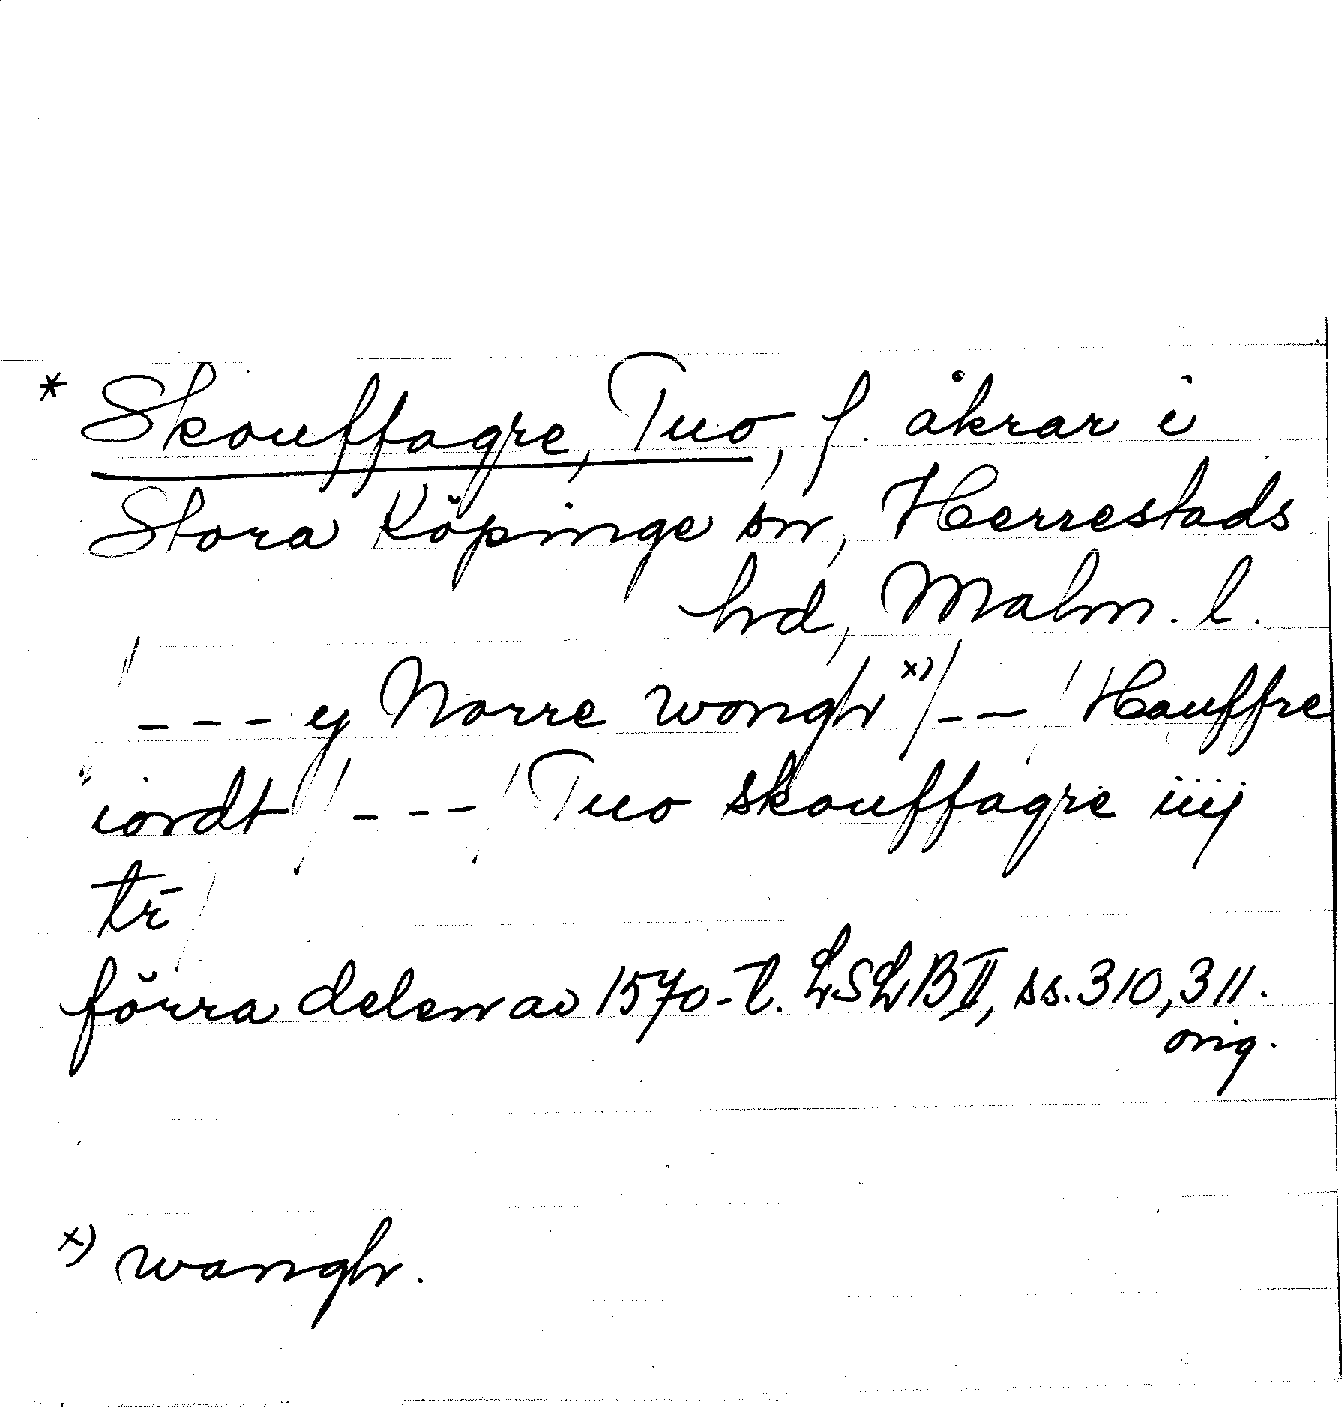 * Skouffagre, Tuo, f. åkrar i
Stora Köpinge sn, Herrestads
hd, Malm. l.
/ --- y Norre wongh x) / -- / Hauffre
iordt / --- / Tuo skouffagre iiij
tr /
förra delen av 1570-t. LSLB II, ss. 310, 311.
orig.
x) wangh.